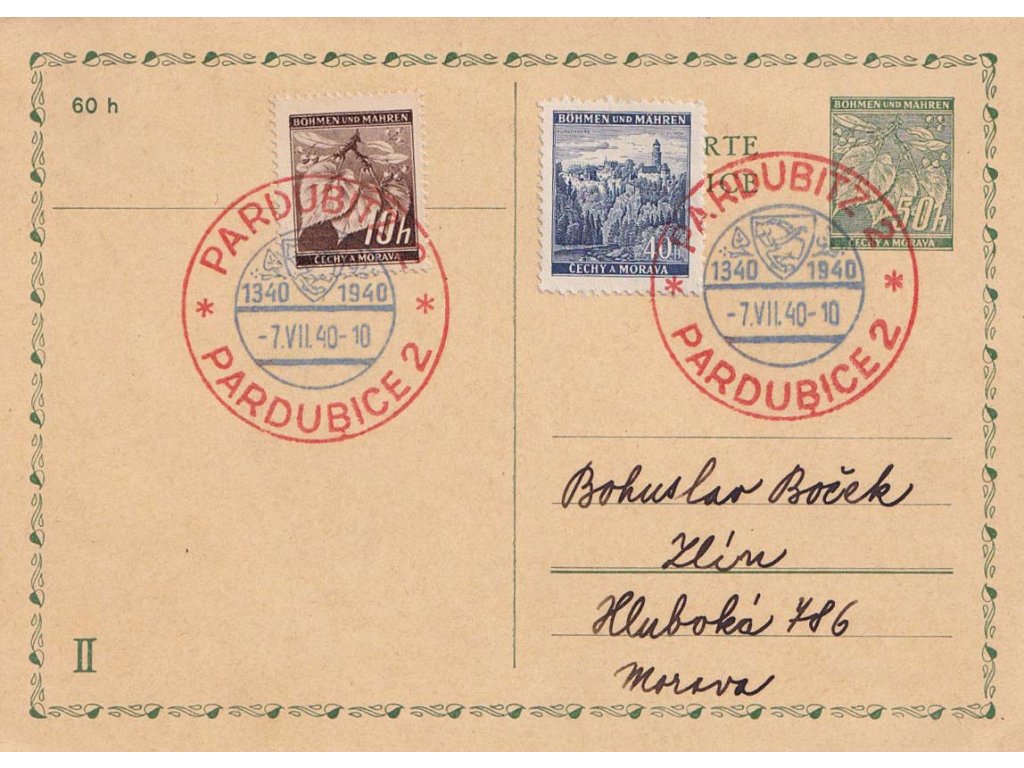 60 h
BÖHMEN UND MÄHREN
10h
ČECHY A MORAVA
BÖHMEN UND MÄHREN
40h
ČECHY A MORAVA
BÖHMEN UND MÄHREN
50h
ČECHY A MORAVA
PARDUBITZ 2
1340 1940
-7.VII.40-10
PARDUBICE 2
PARDUBITZ 2
1340 1940
-7.VII.40-10
PARDUBICE 2
Bohuslav Boček
Zlín
Hluboká 786
Morava
II